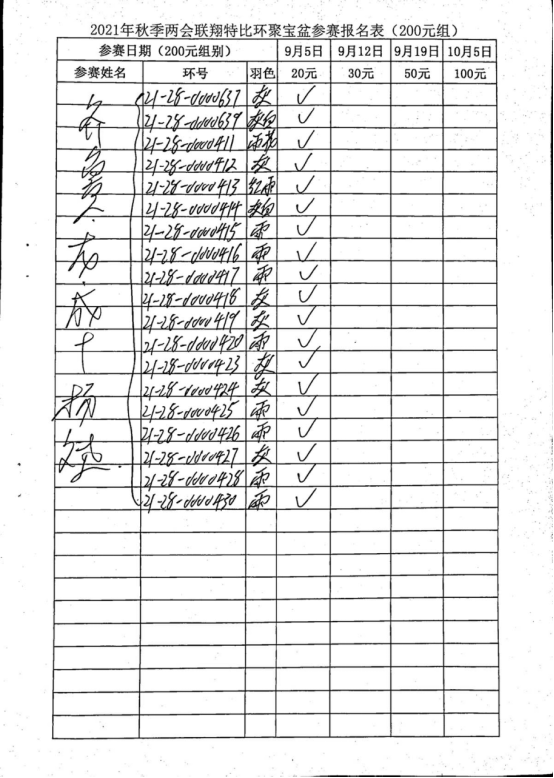 2021年秋季两会联翔特比环聚宝盆参赛报名表（200元组）
参赛日期（200元组别） 9月5日 9月12日 9月19日 10月5日
参赛姓名 环号 羽色 20元 30元 50元 100元
21-28-0000637 灰 ✓
21-28-0000639 灰白 ✓
21-28-0000411 ✓
21-28-0000412 灰 ✓
21-28-0000413 红雨 ✓
21-28-0000414 灰白 ✓
21-28-0000415 雨 ✓
21-28-0000416 雨 ✓
21-28-0000417 雨 ✓
21-28-0000418 灰 ✓
21-28-0000419 灰 ✓
21-28-0000420 雨 ✓
21-28-0000423 灰 ✓
21-28-0000424 灰 ✓
21-28-0000425 雨 ✓
21-28-0000426 雨 ✓
21-28-0000427 灰 ✓
21-28-0000428 雨 ✓
21-28-0000430 雨 ✓